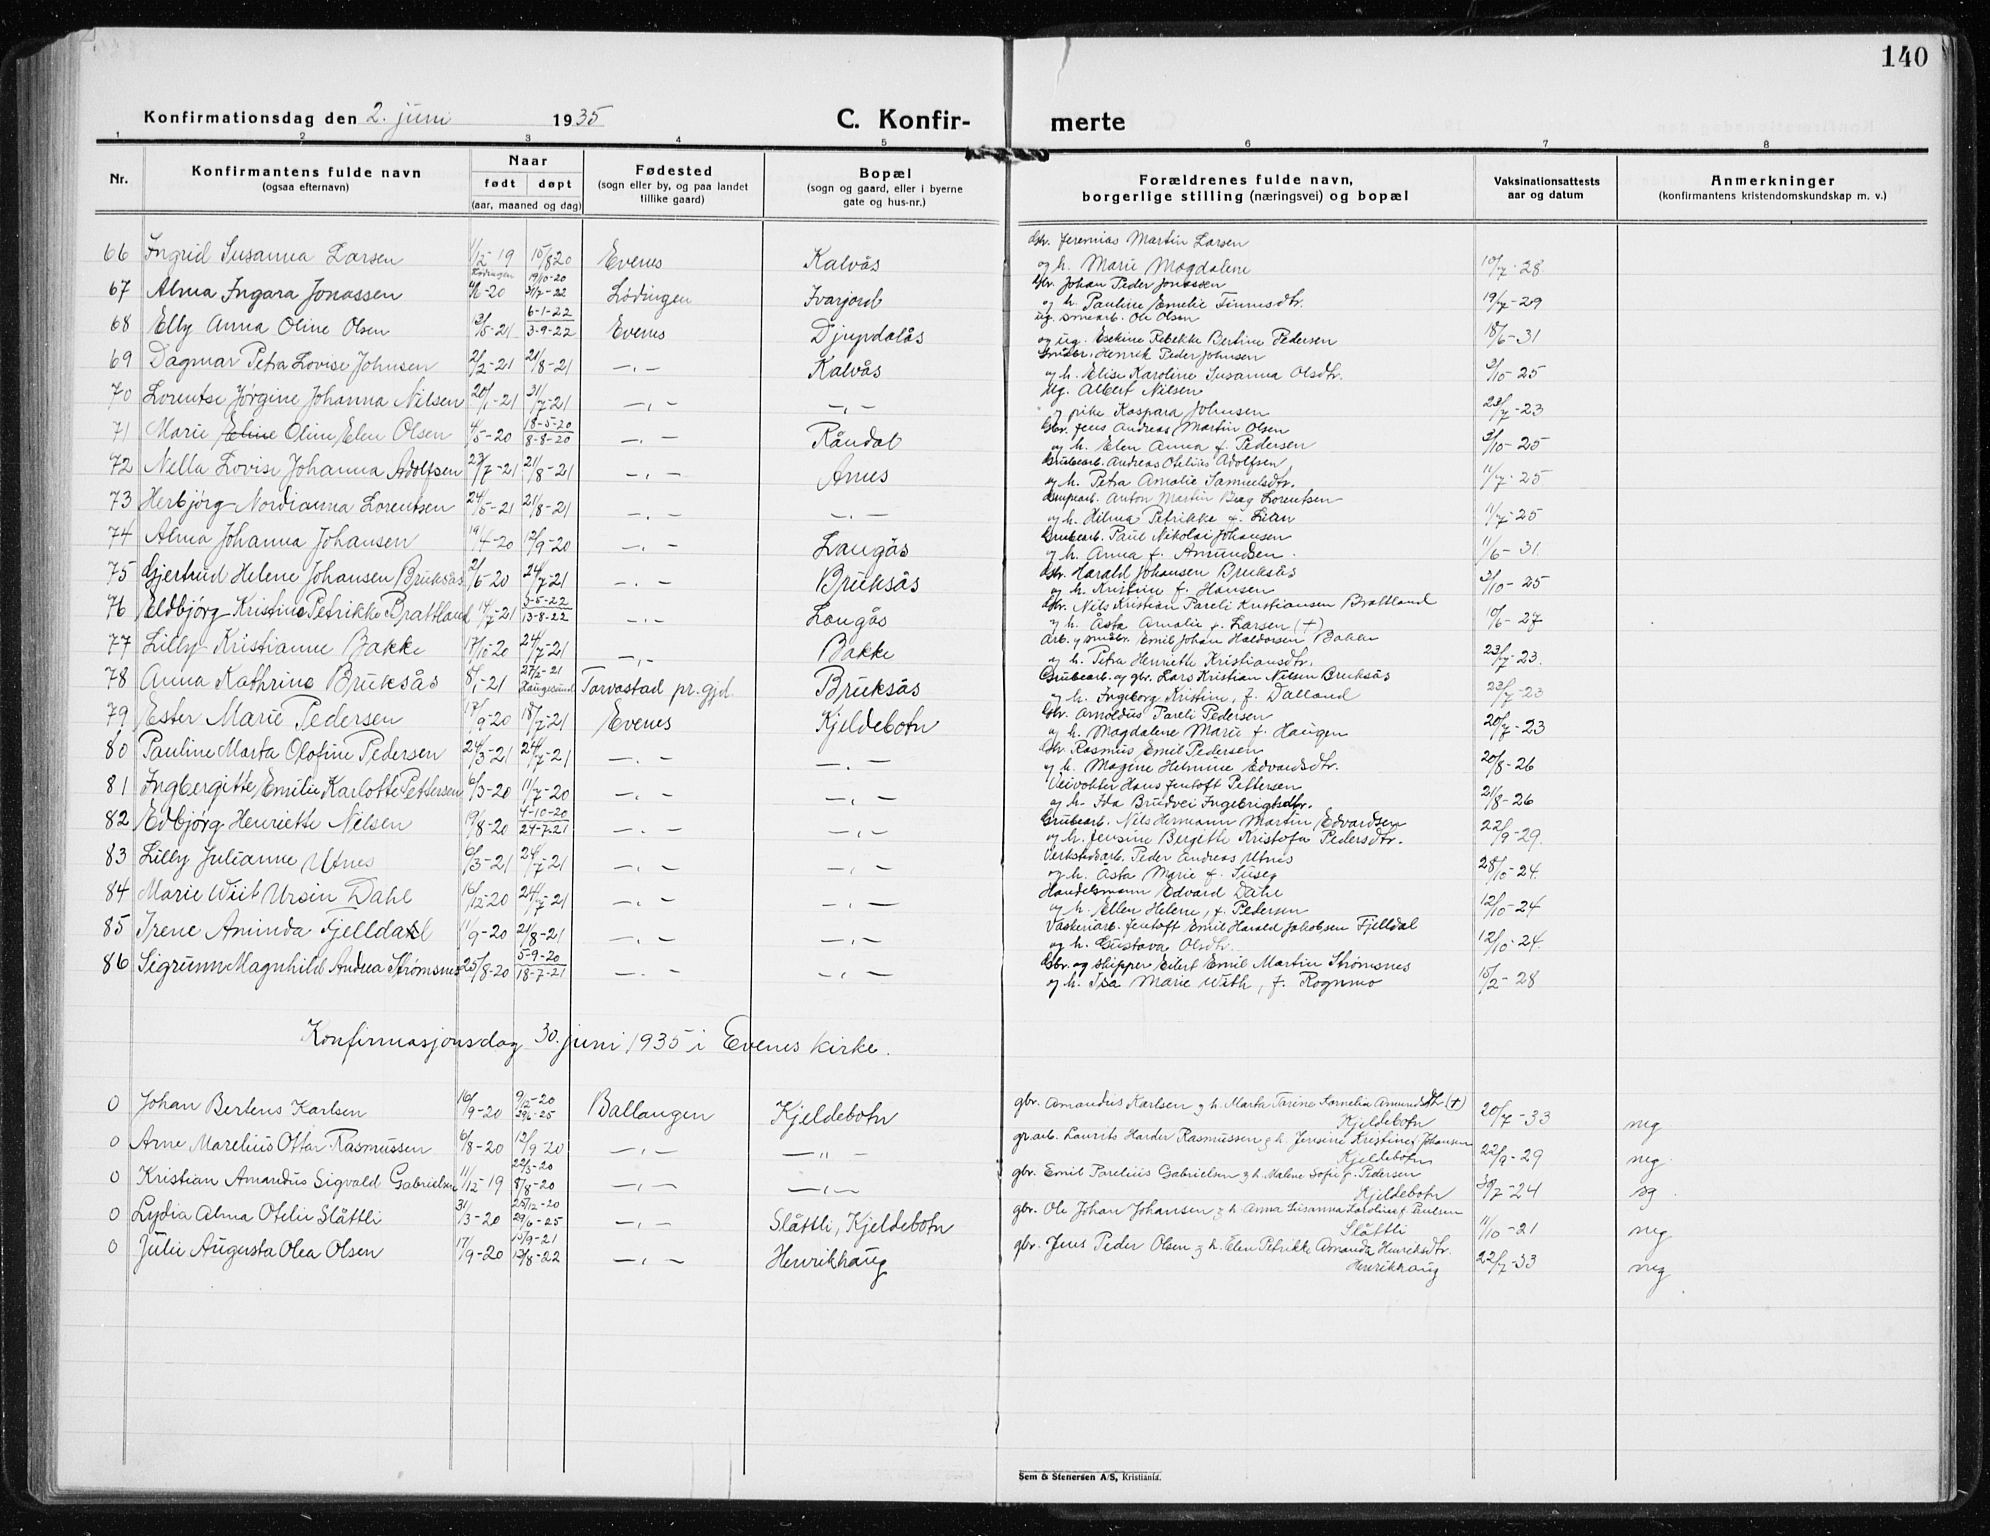 140
Konfirmationsdag den 2. juni 1935
C. Konfir-
merte
1 2 3 4 5 6 7 8
Nr.
Konfirmantens fulde navn
(ogsaa efternavn)
Naar
født døpt
(aar, maaned og dag)
Fødested
(sogn eller by, og paa landet
tillike gaard)
Bopæl
(sogn og gaard, eller i byerne
gate og hus-nr.)
Forældrenes fulde navn,
borgerlige stilling (næringsvei) og bopæl
Vaksinationsattests
aar og datum
Anmerkninger
(konfirmantens kristendomskundskap m. v.)
66 Ingrid Susanna Larsen 1/12-19 15/8 20 Evenes Kalvås
Jeremias Martin Larsen
og h. Marie Magdalene 10/7-28
67 Alma Ingara Jonassen Lødingen 19/10-20 31/7-22 Lødingen Ivarjord
Gbr. Johan Peder Jonassen
og h. Pauline Emelie Finnesdtr. 19/7-29
68 Elly Anna Oline Olsen 13/5-21 6-1-22 3-9-22 Evenes Djupdalås
ug. smearb. Ole Olsen
og ug. Esekine Rebekke Bertine Pedersen 18/6-31
69 Dagmar Petra Lovise Johnsen 2/2-21 21/8-21 —"— Kalvås
Henrik Peder Johnsen
og h. Elise Karoline Susanna Olsdtr. 3/10-25
70 Lorentse Jørgine Johanna Nilsen 20/1-21 31/7-21 —"— —"—
Ug. Albert Nilsen
og pike Kaspara Johnsen 23/7-23
71 Marie Eline Oline Elen Olsen 4/5-20 18-5-20 8-8-20 —"— Råndal
Gbr. Jens Andreas Martin Olsen
og h. Elen Anna f. Pedersen 3/10-25
72 Nella Lovise Johanna Adolfsen 23/7-21 21/8-21 —"— Arnes
Grubearb. Andreas Otelius Adolfsen
og h. Petra Amalie Samuelsdtr. 11/7-25
73 Herbjørg Nordianna Lorentsen 24/5-21 21/8-21 —"— —"—
Grubearb. Anton Martin Berg Lorentsen
og h. Hilma Petrikke f. Lian 11/7-25
74 Alma Johanna Johansen 19/4-20 12/9-20 —"— Langås
Grubearb. Paul Nikolai Johansen
og h. Anna f. Amundsen. 11/6-31
75 Gjertrud Helene Johansen Bruksås 2/6-20 24/7-21 —"— Bruksås
Gbr. Harald Johansen Bruksås
og h. Kristine f. Hansen 3/10-25
76 Eldbjørg Kristine Petrikke Brattland 14/7-21 3-5-22 13-8-22 —"— Langås
Gbr. Nils Kristian Pareli Kristiansen Brattland
og h. Åsta Amalie f. Larsen (+) 10/6-27
77 Lilly Kristianne Bakke 17/10-20 24/7-21 —"— Bakke
Arb. og småbr. Emil Johan Haldorsen Bakke
og h. Petra Henriette Kristiansdtr. 23/7-23.
78 Anna Kathrine Bruksås 8/1-21 27/2-21 Haugesund Torvastad pr.gjd. Bruksås
Grubearb. og gbr. Lars Kristian Nilsen Bruksås
og h. Ingeborg Kristine, f. Dalland 23/7-23
79 Ester Marie Pedersen 17/9-20 18/7-21 Evenes Kjeldebotn
Gbr. Arnoldus Pareli Pedersen
og h. Magdalene Marie f. Haugen 20/7-23
80 Pauline Marta Olofine Pedersen 24/3-21 24/7-21 —"— —"—
Gbr. Rasmus Emil Pedersen
og h. Magine Helmine Edvardsdtr. 20/8-26
81 Ingbergitte Emilie Karlotte Pettersen 6/3-20 11/7-20 —"— —"—
Veivokter Hans Jentoft Pettersen
og h. Ida Brudvei Ingebrigtsdtr. 21/8-26
82 Edbjørg Henriette Nilsen 19/8-20 4-10-20 24-7-21 —"— —"—
Grubearb. Nils Hermann Martin Edvardsen
og h. Jensine Bergitte Kristofa Pedersdtr. 22/9-29.
83 Lilly Julianne Utnes 6/3-21 24/7-21 —"— —"—
Verkstedarb. Peder Andreas Utnes
og h. Åsta Marie f. 28/10-24.
84 Marie Wiit Ursin Dahl 16/12-20 24/7-21 —"— —"—
Handelsmann Edvard Dahl
og h. Ellen Helene, f. Pedersen 12/10-24
85 Irene Aminda Fjelldahl 11/9-20 21/8-21 —"— —"—
Vaskeriarb. Jentoft Emil Harald Jakobsen Fjelldal
og h. Gustava Olsdtr. 12/10-24.
86 Sigrunn Magnhild Andrea Strømsnes 25/8-20 5-9-20 18-7-21 —"— —"—
Gbr. og skipper Eilert Emil Martin Strømsnes
og h. Isa Marie Wiith, f. Rognmo 15/2-28
Konfirmasjonsdag 30. juni 1935 i Evenes kirke.
0 Johan Bertens Karlsen 16/9-20 9/12-20 29/6-25 Ballangen Kjeldebotn
gbr. Amandus Karlsen og h. Marta Tarine Kornelia Amundsdtr (+)
Kjeldebotn 20/7-33 mg
0 Arne Marelius Ottar Rasmussen 6/8-20 12/9-20 —"— —"—
gr.arb. Laurits Harder Rasmussen og h. Jensine Kristine f. Johansen
Kjeldebotn 22/9-29 mg.
0 Kristian Amandus Sigvald Gabrielsen 11/12-19 22/3-20 8/8-20 —"— —"—
gbr. Emil Parelius Gabrielsen og h. Malene Sofie f. Pedersen
Kjeldebotn 30/7-24 sg.
0 Lydia Alma Otelie Slåttli 31/3-20 25/12-20 29/6-25 —"— Slåttli, Kjeldebotn
gbr. Ole Johan Johansen og h. Anna Susanna Karoline f. Paulsen
Slåttli 11/10-21 mg
0 Julie Augusta Olea Olsen 17/9-20 15/9-21 13/8-22 —"— Henrikhaug
gbr. Jens Peder Olsen og h. Elen Petrikke Amanda Henriksdtr.
Henrikhaug 22/7-33 mg
Sem & Stenersen A/S, Kristiania.